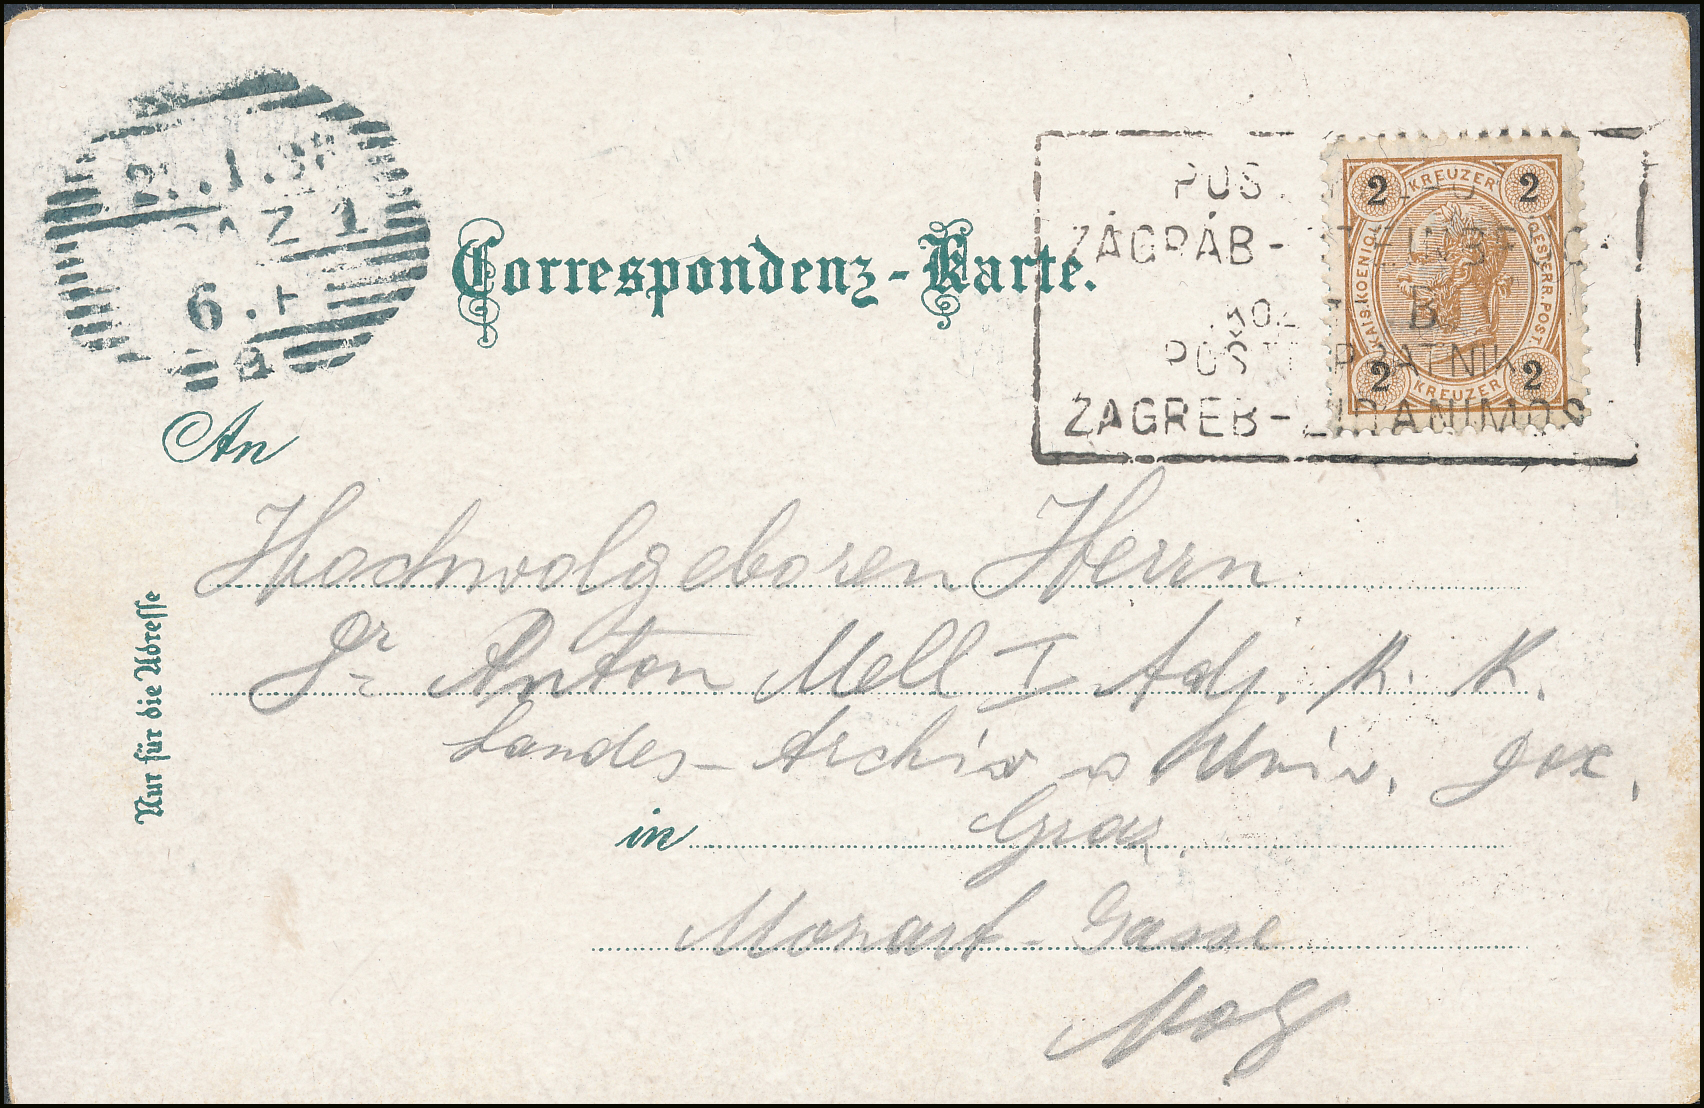 2 . 1 . 9
AZ 1
6 . +
Correspondenz-Karte.
ZÁGRÁB -
B.
ZAGREB - ZIDANIMOS
2 KREUZER 2
KAIS. KOENIGL. OESTERR. POST
2 KREUZER 2
An
Hochwolgeboren Herrn
Dr Anton Mell I Adj. K. K.
Landes-Archiv u Univ. Doc.
in Graz
Mozart-Gasse
No 8
Nur für die Adresse